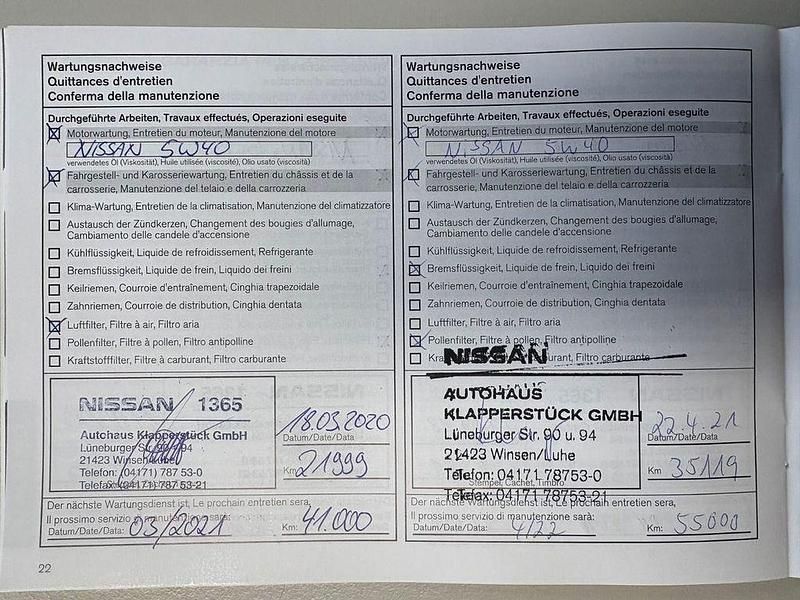 Wartungsnachweise
Quittances d'entretien
Conferma della manutenzione
Durchgeführte Arbeiten, Travaux effectués, Operazioni eseguite
Motorwartung, Entretien du moteur, Manutenzione del motore
NISSAN 5W40
verwendetes Öl (Viskosität), Huile utilisée (viscosité), Olio usato (viscosità)
Fahrgestell- und Karosseriewartung, Entretien du châssis et de la
carrosserie, Manutenzione del telaio e della carrozzeria
Klima-Wartung, Entretien de la climatisation, Manutenzione del climatizzatore
Austausch der Zündkerzen, Changement des bougies d'allumage,
Cambiamento delle candele d'accensione
Kühlflüssigkeit, Liquide de refroidissement, Refrigerante
Bremsflüssigkeit, Liquide de frein, Liquido dei freini
Keilriemen, Courroie d'entraînement, Cinghia trapezoidale
Zahnriemen, Courroie de distribution, Cinghia dentata
Luftfilter, Filtre à air, Filtro aria
Pollenfilter, Filtre à pollen, Filtro antipolline
Kraftstofffilter, Filtre à carburant, Filtro carburante
NISSAN 1365
Autohaus Klapperstück GmbH
Lüneburger Str. 90/94
21423 Winsen/Luhe
Telefon: (04171) 787 53-0
Telefax: (04171) 787 53-21
18.03.2020
Datum/Date/Data:
Km: 21999
Der nächste Wartungsdienst ist, Le prochain entretien sera,
Il prossimo servizio di manutenzione sarà:
Datum/Date/Data: 03/2021 Km: 41.000
22
Wartungsnachweise
Quittances d'entretien
Conferma della manutenzione
Durchgeführte Arbeiten, Travaux effectués, Operazioni eseguite
Motorwartung, Entretien du moteur, Manutenzione del motore
NISSAN 5W40
verwendetes Öl (Viskosität), Huile utilisée (viscosité), Olio usato (viscosità)
Fahrgestell- und Karosseriewartung, Entretien du châssis et de la
carrosserie, Manutenzione del telaio e della carrozzeria
Klima-Wartung, Entretien de la climatisation, Manutenzione del climatizzatore
Austausch der Zündkerzen, Changement des bougies d'allumage,
Cambiamento delle candele d'accensione
Kühlflüssigkeit, Liquide de refroidissement, Refrigerante
Bremsflüssigkeit, Liquide de frein, Liquido dei freini
Keilriemen, Courroie d'entraînement, Cinghia trapezoidale
Zahnriemen, Courroie de distribution, Cinghia dentata
Luftfilter, Filtre à air, Filtro aria
Pollenfilter, Filtre à pollen, Filtro antipolline
Filtro carburante
NISSAN
AUTOHAUS
KLAPPERSTÜCK GMBH
Lüneburger Str. 90 u. 94
21423 Winsen/Luhe
Telefon: 04171 78753-0
Stempel, Cachet, Timbro
Telefax: 04171 78753-21
22.4.21
Datum/Date/Data:
Km: 35119
Der nächste Wartungsdienst ist, Le prochain entretien sera,
Il prossimo servizio di manutenzione sarà:
Datum/Date/Data: 4/22 Km: 55000